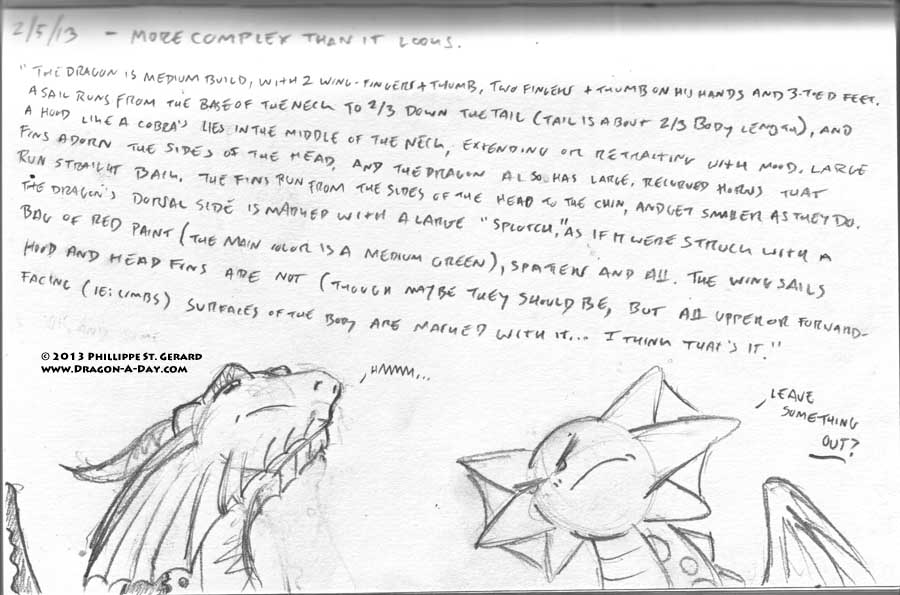 2/5/13 - MORE COMPLEX THAN IT LOOKS.
"THE DRAGON IS MEDIUM BUILD, WITH 2 WING-FINGERS + THUMB, TWO FINGERS + THUMB ON HIS HANDS AND 3-TOED FEET.
A SAIL RUNS FROM THE BASE OF THE NECK TO 2/3 DOWN THE TAIL (TAIL IS ABOUT 2/3 BODY LENGTH), AND
A HOOD LIKE A COBRA'S LIES IN THE MIDDLE OF THE NECK, EXTENDING OR RETRACTING WITH MOOD. LARGE
FINS ADORN THE SIDES OF THE HEAD, AND THE DRAGON ALSO HAS LARGE, RECURVED HORNS THAT
RUN STRAIGHT BACK. THE FINS RUN FROM THE SIDES OF THE HEAD TO THE CHIN, AND GET SMALLER AS THEY DO.
THE DRAGON'S DORSAL SIDE IS MARKED WITH A LARGE "SPLOTCH," AS IF IT WERE STRUCK WITH A
BAG OF RED PAINT (THE MAIN COLOR IS A MEDIUM GREEN), SPATTERS AND ALL. THE WING SAILS
HOOD AND HEAD FINS ARE NOT (THOUGH MAYBE THEY SHOULD BE, BUT ALL UPPER OR FORWARD-
FACING (IE: LIMBS) SURFACES OF THE BODY ARE MARKED WITH IT... I THINK THAT'S IT."
© 2013 PHILLIPPE ST. GERARD
WWW.DRAGON-A-DAY.COM
HMMM...
LEAVE
SOMETHING
OUT?